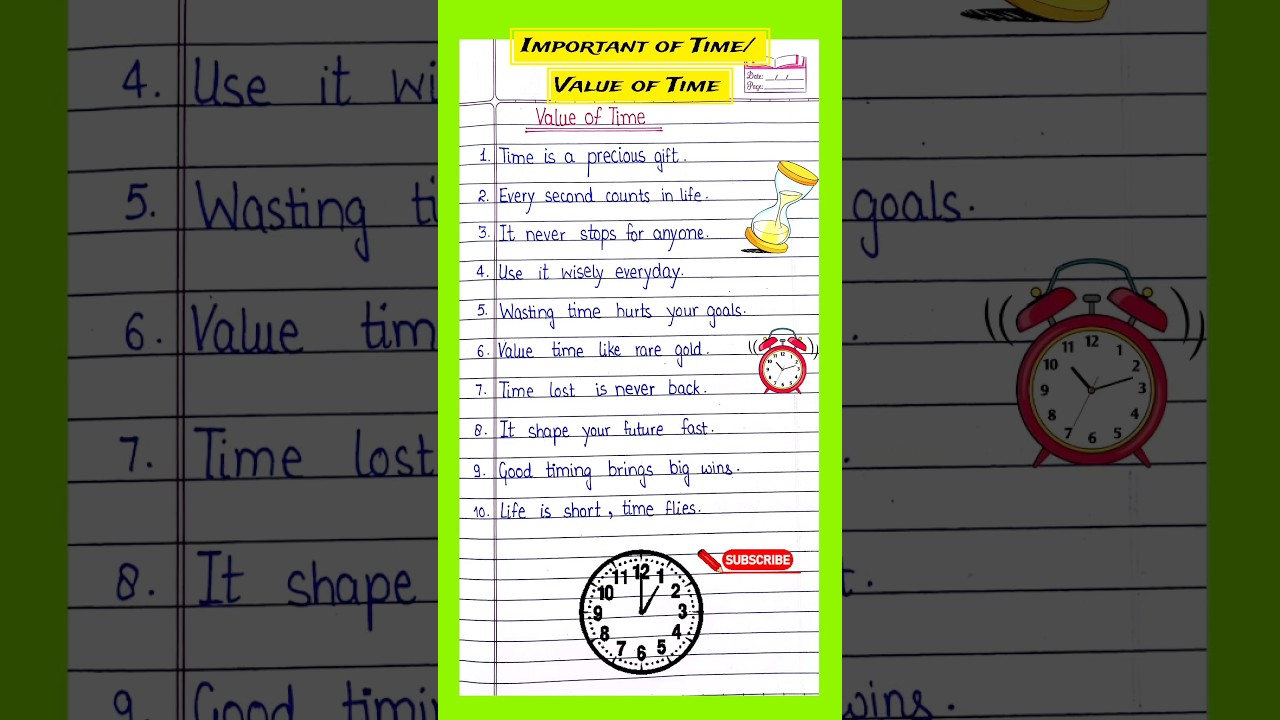 IMPORTANT OF TIME/
VALUE OF TIME
Date: __/__/__
Page: ______
Value of Time
1. Time is a precious gift.
2. Every second counts in life.
3. It never stops for anyone.
4. Use it wisely everyday.
5. Wasting time hurts your goals.
6. Value time like rare gold.
7. Time lost is never back.
8. It shape your future fast.
9. Good timing brings big wins.
10. Life is short, time flies.
SUBSCRIBE
11 12 1
10 2
9 3
8 4
7 6 5
4. Use it wi
5. Wasting ti
goals.
6. Value tim
7. Time lost
8. It shape
9. Good timi
wins.
11 12 1
10 2
9 3
8 4
7 6 5